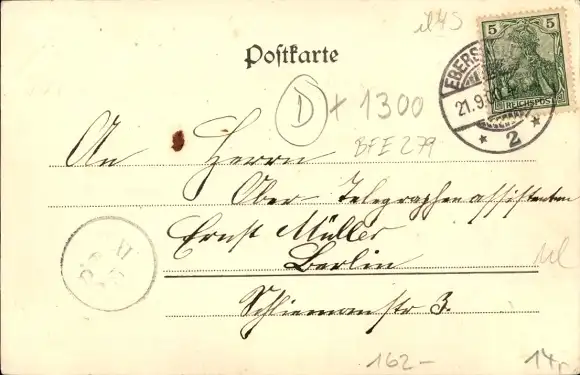 il45
5 5
Postkarte
EBERS
REICHSPOST
21.9.
* 2 *
D + 1300
BFE 279
An Herrn
Ober Telegraphenassistenten
Ernst Müller
Berlin
Schliemannstr 3.
162-
14,